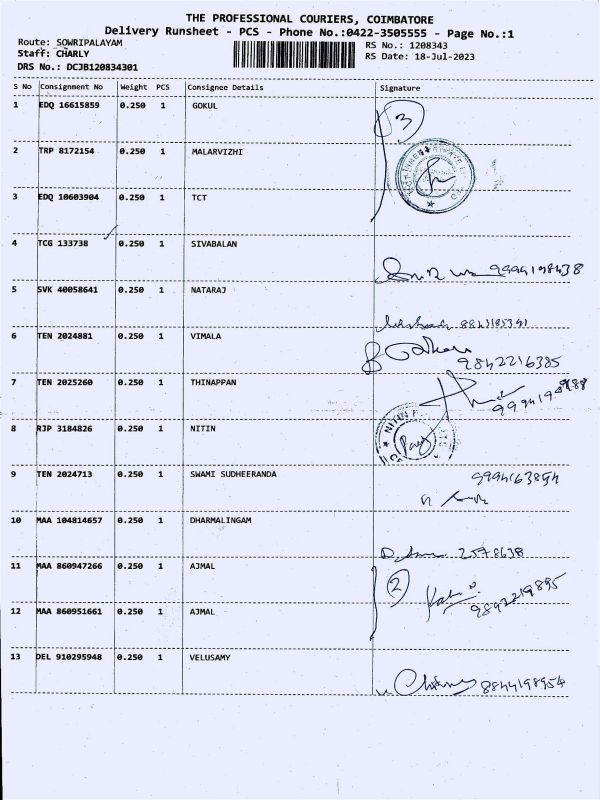 THE PROFESSIONAL COURIERS, COIMBATORE
Delivery Runsheet - PCS - Phone No.:0422-3505555 - Page No.:1
Route: SOWRIPALAYAM
RS No.: 1208343
Staff: CHARLY
RS Date: 18-Jul-2023
DRS No.: DCJB120834301
S No Consignment No Weight PCS Consignee Details Signature
1 EDQ 16615859 0.250 1 GOKUL
3
2 TRP 8172154 0.250 1 MALARVIZHI
3 EDQ 10603904 0.250 1 TCT
4 TCG 133738 0.250 1 SIVABALAN
5 SVK 40058641 0.250 1 NATARAJ
6 TEN 2024881 0.250 1 VIMALA
9842216385
7 TEN 2025260 0.250 1 THINAPPAN
8 RJP 3184826 0.250 1 NITIN
NITIN
9 TEN 2024713 0.250 1 SWAMI SUDHEERANDA
10 MAA 104814657 0.250 1 DHARMALINGAM
2578638
11 MAA 860947266 0.250 1 AJMAL
2
9892219895
12 MAA 860951661 0.250 1 AJMAL
13 DEL 910295948 0.250 1 VELUSAMY
8844198954